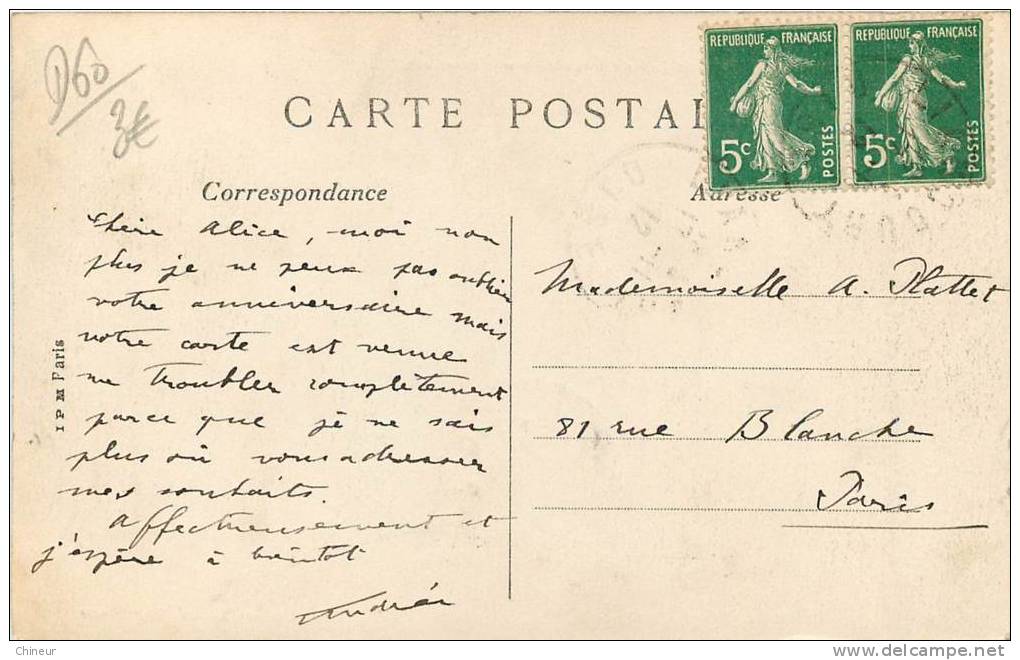 D60
3€
CARTE POSTAL
REPUBLIQUE FRANÇAISE
5c
POSTES
REPUBLIQUE FRANÇAISE
5c
POSTES
Correspondance
Chère Alice, moi non
plus je ne peux pas oublier
votre anniversaire mais
votre carte est venue
me troubler complètement
parce que je ne sais
plus où vous adresser
mes souhaits.
Affectueusement et
j'espère à bientot
Andrée
I P M Paris
Adresse
Mademoiselle A. Plattet
81 rue Blanche
Paris
Chineur
www.delcampe.net